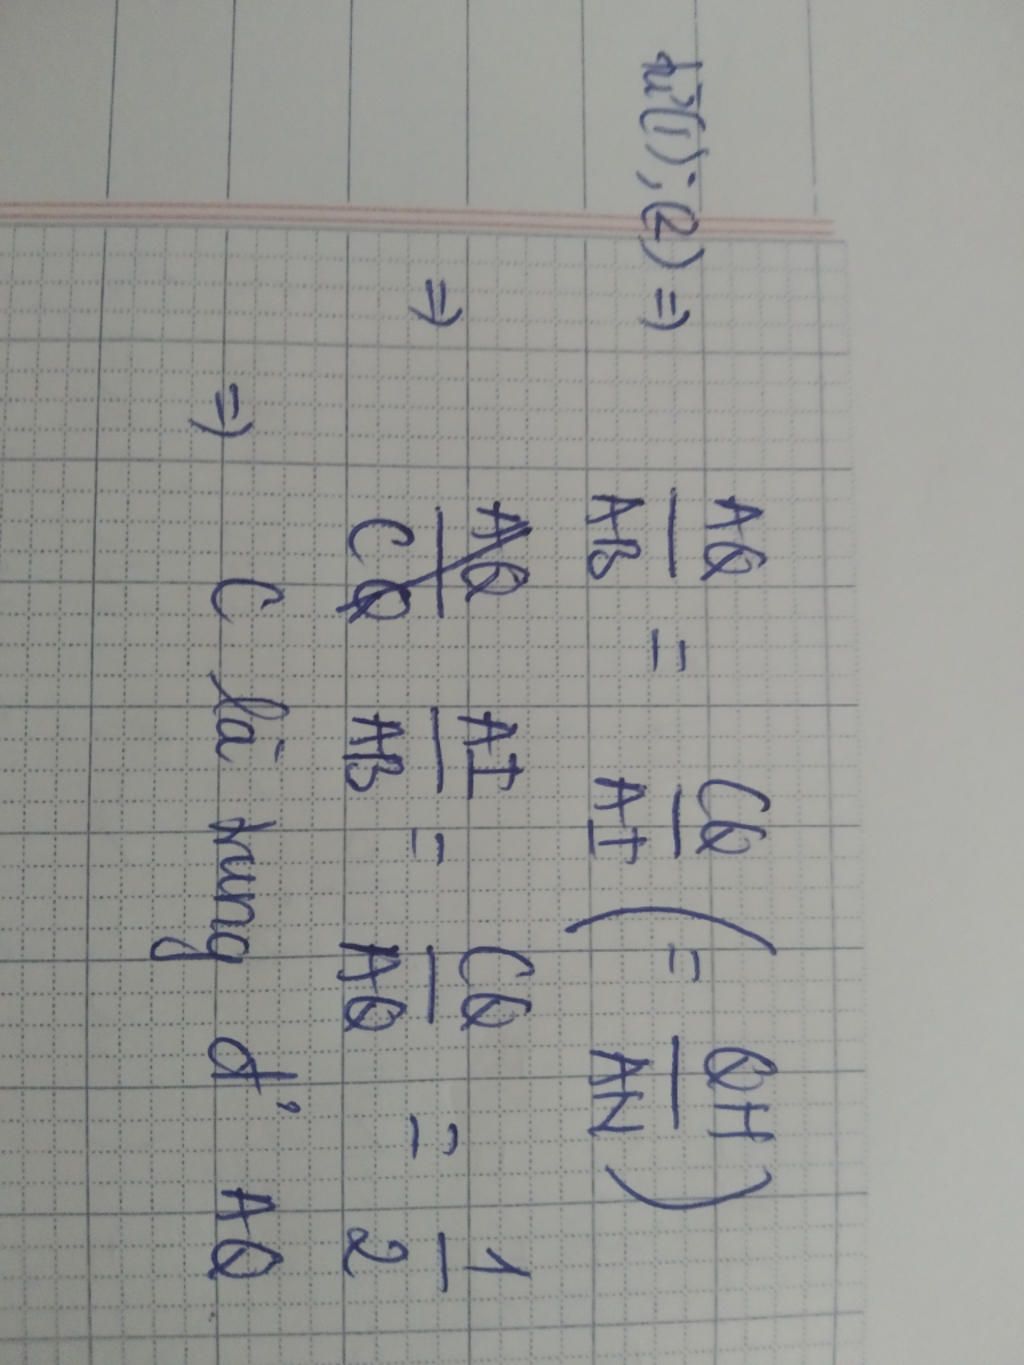 từ (1); (2) => AQ/AB = CQ/AI (= QH/AN)
=> AI/AB = CQ/AQ = 1/2
=> C là trung đ' AQ